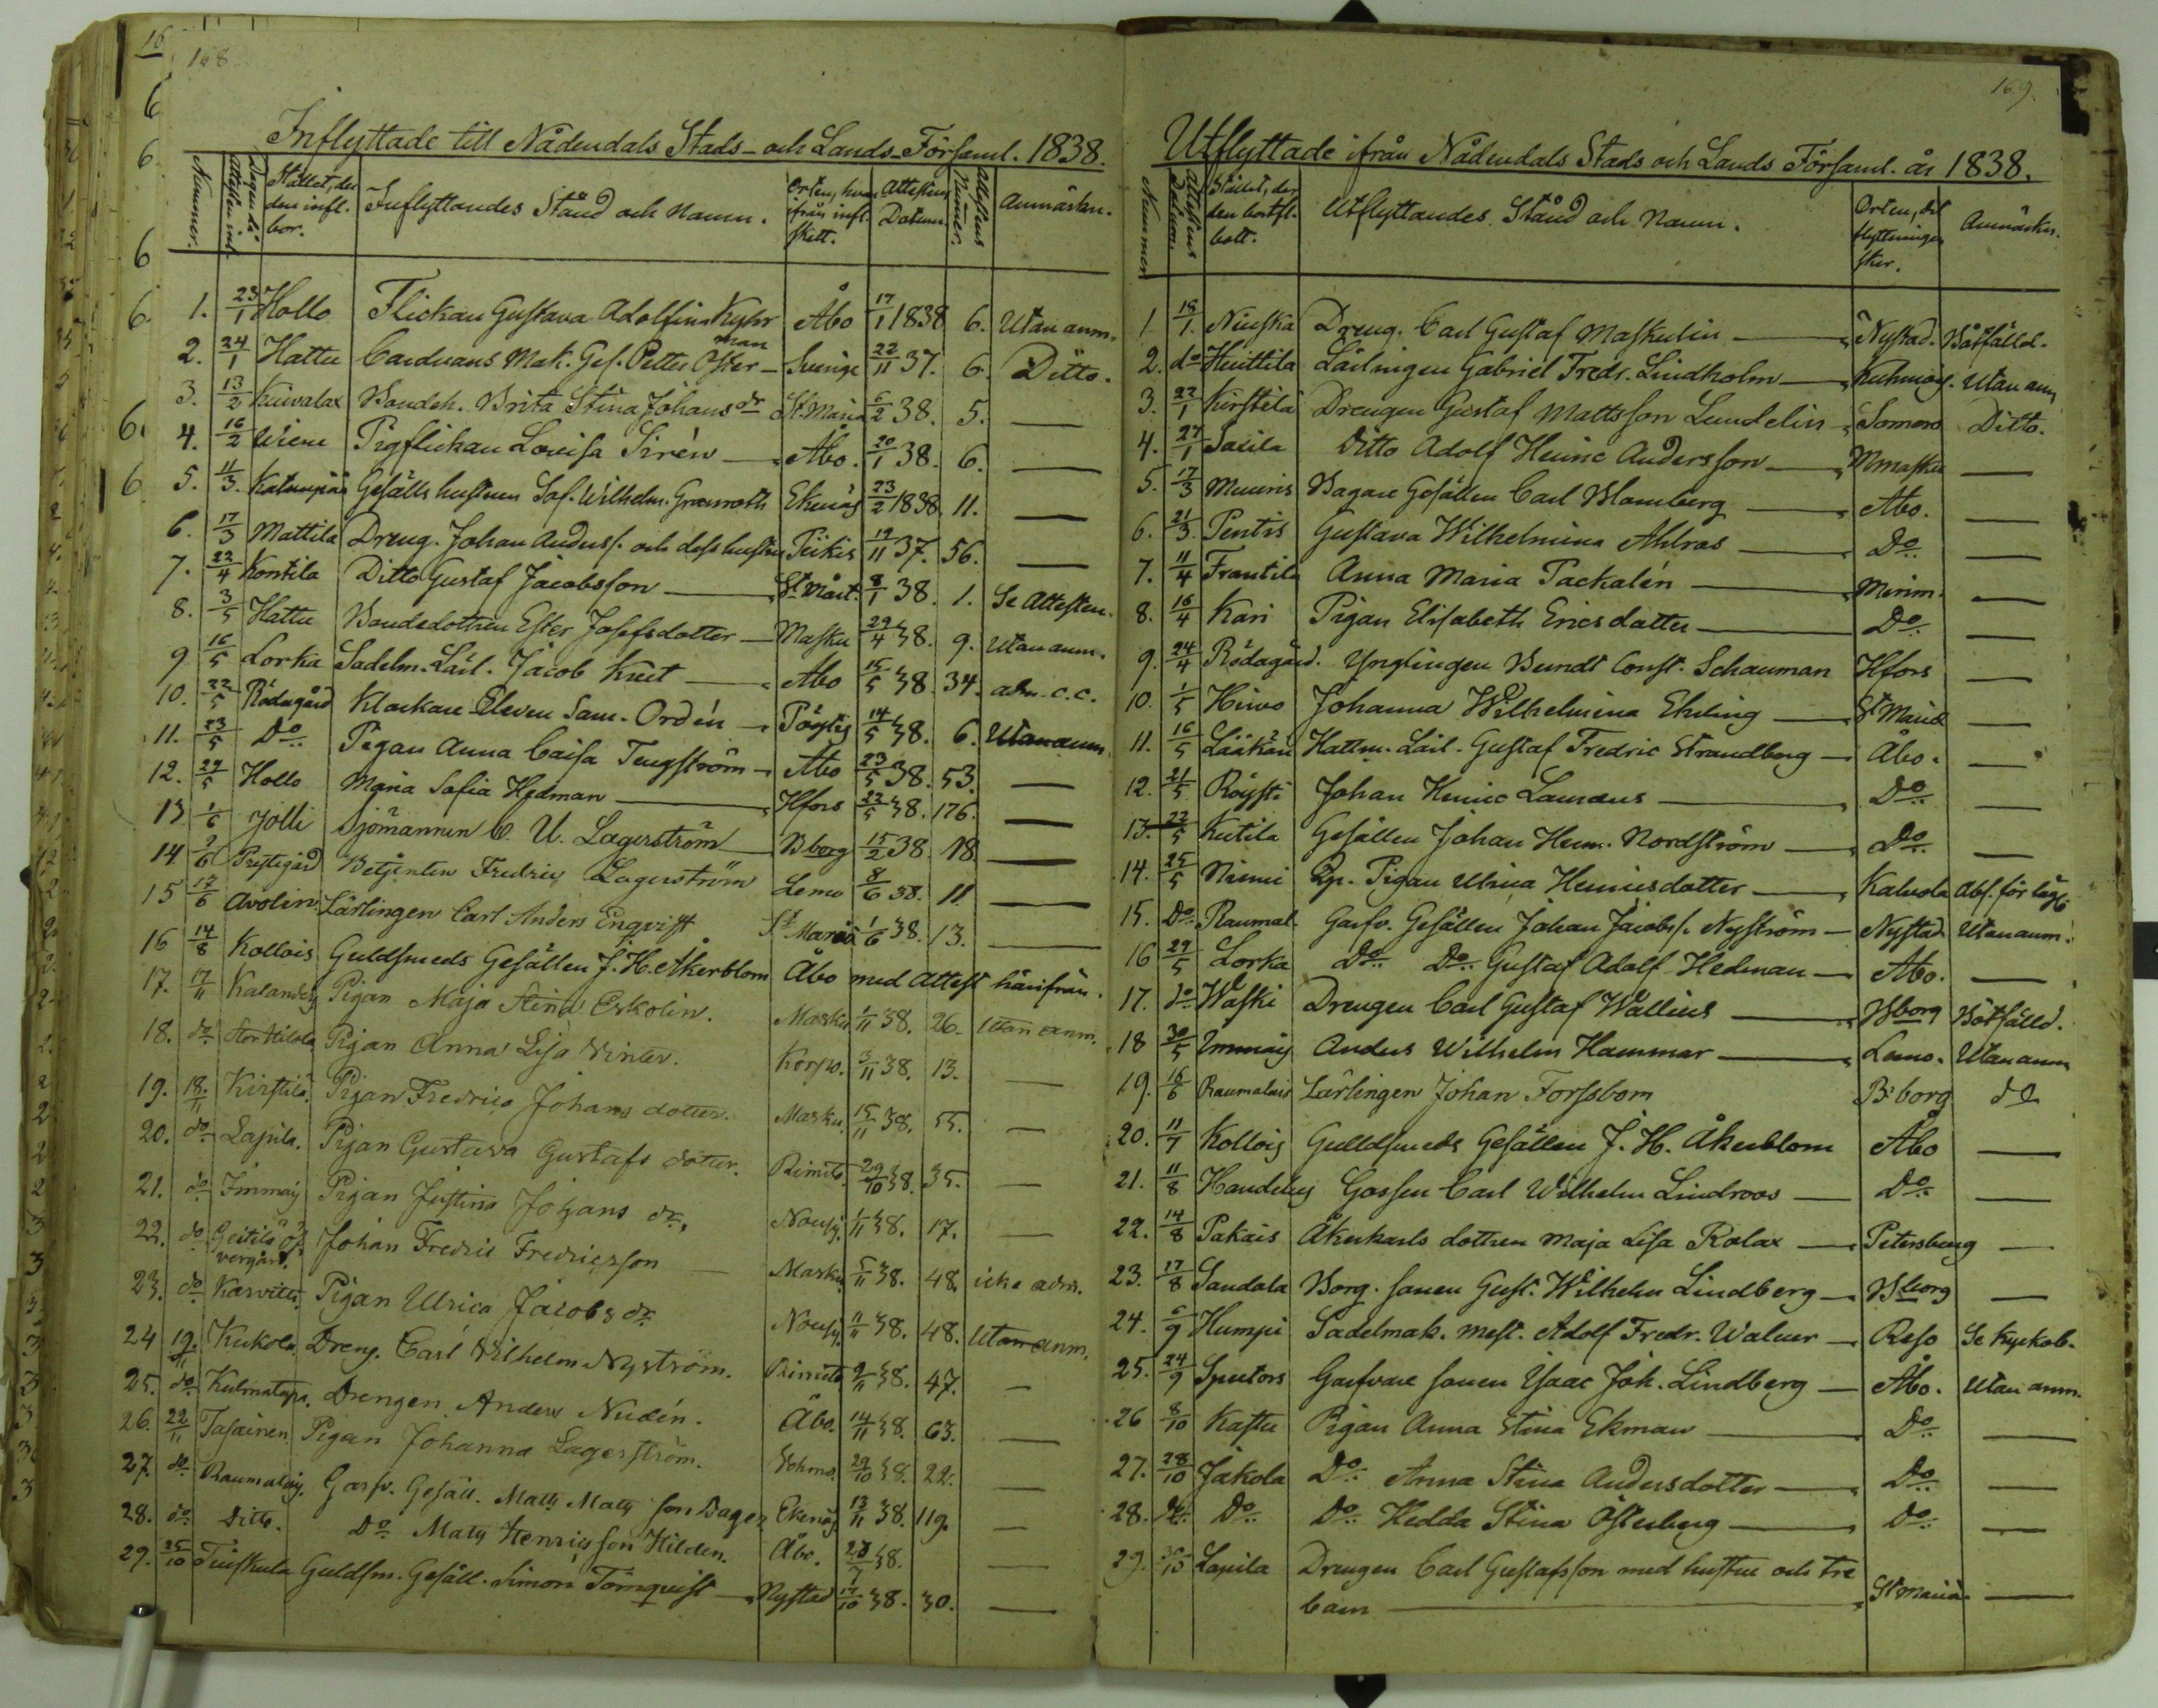 168
Inflyttade till Nådendals Stads- och Lands-Församl. 1838.
Nummer. Dagen då attesten inl. Stället, der den infl. bor. Inflyttandes Stånd och Namn. Orten, hvarifrån infl. skett. Attestens Datum. Attestens Nummer. Anmärkn.
1. 23/1 Hollo Flickan Gustava Adolfina Kyhr Åbo 17/1 1838 6. Utan anm.
2. 24/1 Hattu Carduans Mak. Ges. Petter Österman Sverige 22/11 37. 6. Ditto.
3. 13/2 Kuivalax Bondeh. Brita Stina Johans dr St Maria 6/2 38. 5. —
4. 16/2 Wiene Pigflickan Lovisa Sirén Åbo. 20/1 38. 6. —
5. 11/3. Katanpää Gesälls hustrun Sof. Wilhelm. Grönroth Ekenäs 23/2 1838. 11. —
6. 17/3 Mattila Dreng. Johan Anderss. och dess hustru Piikis 19/11 37. 56. —
7. 22/4 Kontila Ditto Gustaf Jacobsson St Mårt. 8/1 38. 1. Se Attesten.
8. 3/5 Hattu Bondedottren Ester Josefsdotter Masku 29/4 38. 9. Utan anm.
9 16/5 Lorka Sadelm. Lärl. Jacob Kut Åbo 15/5 38. 34. adm. c.c.
10. 22/5 Rådagård Klockare Eleven Sam. Ordén Pöytis 14/5 38. 6. Utan anm.
11. 23/5 Do Pigan Anna Caisa Tengström Åbo 23/5 38. 53. —
12. 29/5 Hollo Maria Sofia Hedman Hfors 22/5 38. 176. —
13 1/6 Jolli Sjömannen C. U. Lagerström Bborg 15/2 38. 18 —
14 9/6 Prestegård Betjenten Fredric Lagerström Lemo 8/6 38. 11 —
15 17/6 Avolin Lärlingen Carl Anders Enqvist St Maria 1/6 38. 13. —
16 14/8 Kollois Guldsmeds Gesällen J. H. Åkerblom Åbo med attest härifrån.
17. 17/11 Kalandy Pigan Maja Stina Eskolin. Masku 1/11 38. 26. Utan anm.
18. do Stor Hilola Pigan Anna Lisa Vinter. Korpo. 3/11 38. 13. —
19. 18/11 Kirstilä Pigan Fredrica Johans dotter. Masku. 15/11 38. 55. —
20. do Lapila. Pigan Gustava Gustafs dotter. Rimito. 29/10 38. 35. —
21. do Immais Pigan Justina Johans dr. Nousis. 1/11 38. 17. —
22. do Geitilä Öfvergård. Johan Fredric Fredricsson Masku. 5/11 38. 48. icke adm.
23. do Karvitti Pigan Ulrica Jacobs dr Nousis. 11/11 38. 48. Utan anm.
24 19/11 Kukola Dreng. Carl Vilhelm Nyström. Rimito 9/11 38. 47. —
25. do Kulmatupa. Drengen Anders Nudén. Åbo. 14/11 38. 63. —
26. 22/11 Tasainen Pigan Johanna Lagerström. Vehmo. 29/10 38. 22. —
27. do Raumalais. Garfv. Gesäll. Matts Matts son Dager Ekenäs 13/11 38. 119. —
28. do Ditto. Do Matts Henricsson Hilden. Åbo. 28/7 38. —
29. 25/10 Tuiskula Guldsm. Gesäll. Simon Törnquist Nystad 17/10 38. 30. —
169.
Utflyttade ifrån Nådendals Stads och Lands Församl. år 1838.
Nummer Attestens Datum. Stället, der den bortfl. bott. Utflyttandes Stånd och Namn. Orten, dit flyttningen sker. Anmärkn.
1. 18/1. Niuska Dreng. Carl Gustaf Maskulin Nystad. Bötfälld.
2. do Huittila Lärlingen Gabriel Fredr. Lindholm Kuhmois. Utan anm
3. 22/1 Kirstilä Drengen Gustaf Mattsson Lundelin Somero Ditto.
4. 27/1 Soisila Ditto Adolf Heinric Andersson Wmasku —
5. 17/3 Muuris Bagare Gesällen Carl Blomberg Åbo. —
6. 21/3. Pentis Gustava Wilhelmina Ahlros Do —
7. 11/4 Frantila Anna Maria Packalén Merim. —
8. 16/4 Kari Pigan Elisabeth Ericsdotter Do —
9. 24/4 Rådagård. Ynglingen Berndt Const. Schauman Hfors —
10. 1/5 Hirvo Johanna Wilhelmina Ehrling St Mariæ —
11. 16/5 Lääkäri Hattm. Lärl. Gustaf Fredric Strandberg Åbo. —
12. 21/5 Röysti Johan Henric Laurens Do —
13. 22/5 Kutila Gesällen Johan Henr. Nordström Do —
14. 25/5 Niemi Qp. Pigan Ulrica Henricsdotter Kalvola Abs. för läg.
15. Do Raumal. Garfv. Gesällen Johan Jacobss. Nyström Nystad Utan anm.
16 29/5 Lorka Do Do Gustaf Adolf Hedman Åbo. —
17. do Waski Drengen Carl Gustaf Wallius Bborg Bötfälld.
18 30/5 Immais Anders Wilhelm Hammar Lemo. Utan anm
19. 16/6 Raumalais Lärlingen Johan Forssbom B:borg do
20. 11/7 Kollois Gulldsmeds Gesällen J. H. Åkerblom Åbo —
21. 11/8 Handelus Gossen Carl Wilhelm Lindroos Do —
22. 14/8 Pakais Åkerkarls dottren Maja Lisa Rolax Petersburg —
23. 17/8 Sandala Borg. sonen Gust. Wilhelm Lindberg Bborg —
24. 6/9 Humpi Sadelmak. mest. Adolf Fredr. Waluer Reso Se Kyrkob.
25. 24/9 Sputors Garfvare sonen Isaac Joh. Lindberg Åbo. Utan anm.
26 8/10 Kastu Pigan Anna Stina Ekman Do —
27. 28/10 Jakola Do Anna Stina Andersdotter Do —
28. do Do Do Hedda Stina Österberg Do —
29. 30/10 Lapila Drengen Carl Gustafsson med hustru och tre
barn St Maria —